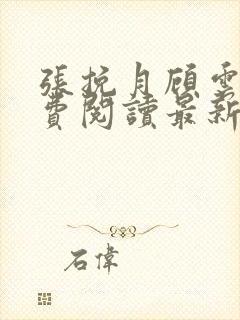 張挽月顧雲
費閱讀最新
石偉